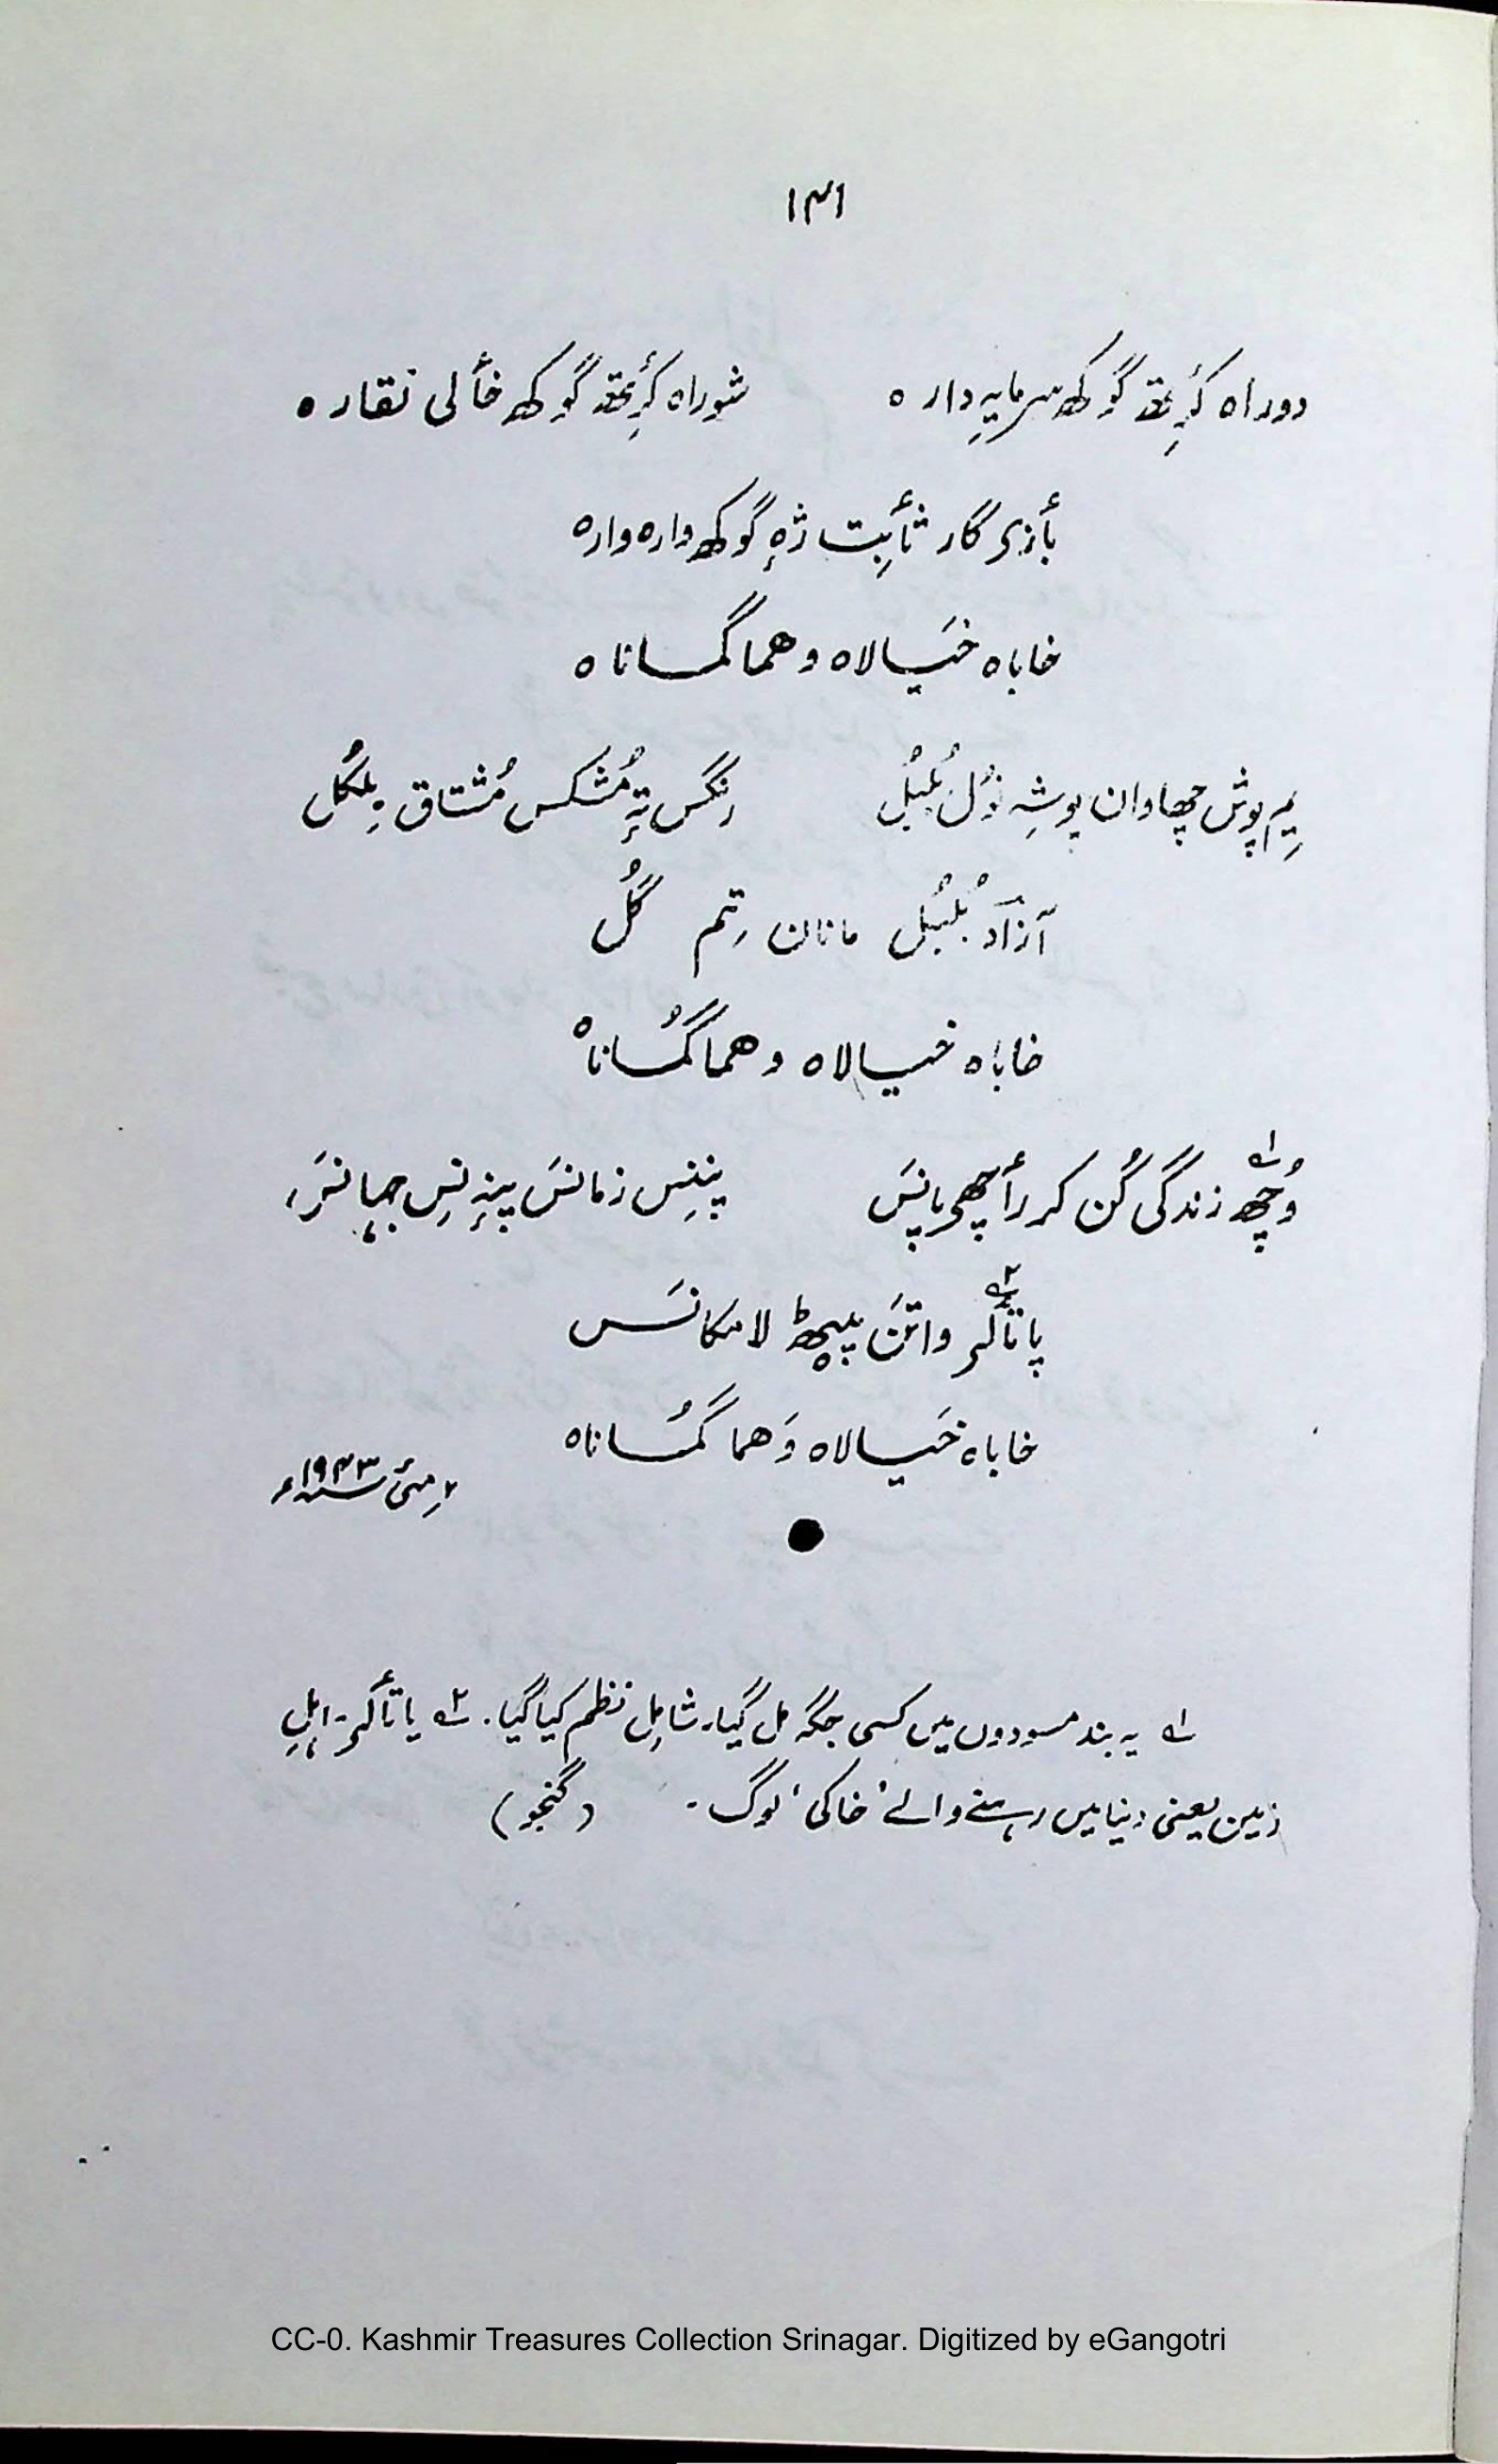 ۱۴۱
دوراہ کٔرِتھ گوکھ سرمایہِ دارہ شوراہ کٔرِتھ گوکھ خٲلی نقارہ
بٲزی گار ثٲبِت ژٕہ گوکھ وارہ وارہ
خاباہ خَیالاہ وھما گماناہ
یِم پوش چھاوان پوشہِ نوٗل بُلبُل رنگس تہٕ مُشکس مُشتاق بِلکُل
آزاد بُلبُل مانان تِم گُل
خاباہ خیالاہ وھما گُماناہ
وُچھ ۱؎ زندگی کُن کر رٲچھی پانَس پننِس زمانَس پننِس جہانَس
پاتٲلی ۲؎ واتَن پیٹھ لامکانَس
خاباہ خَیالاہ وَھما گُماناہ
۲ مئی ۱۹۴۳ء
۱؎ یہ بند مسودوں میں کسی جگہ مل گیا۔ شاملِ نظم کیا گیا۔ ۲؎ پاتٲلی۔ اہلِ
زمین یعنی دنیا میں رہنے والے ’خاکی‘ لوگ۔ (گنجو)
CC-0. Kashmir Treasures Collection Srinagar. Digitized by eGangotri